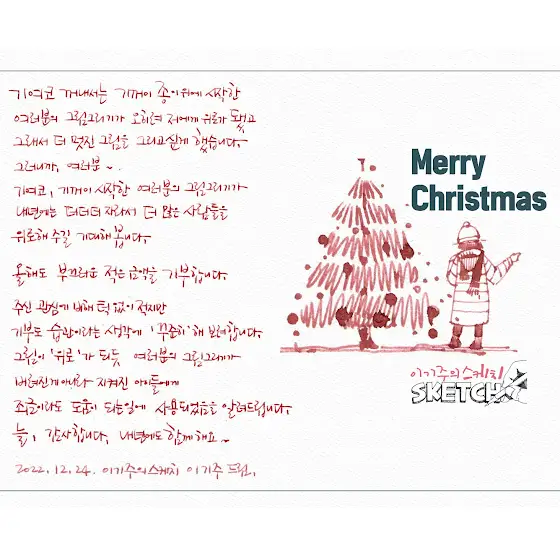 기여코 꺼내서는 기꺼이 종이위에 시작한
여러분의 그림그리기가 오히려 저에게 위로가 됐고
그래서 더 멋진 그림을 그리고싶게 했습니다.
그러니까, 여러분~.
기여코, 기꺼이 시작한 여러분의 그림그리기가
내년에는 더더더 자라서 더 많은 사람들을
위로해 주길 기대해 봅니다.
올해도 부끄러운 적은 금액을 기부합니다.
주신 관심에 비해 턱없이 적지만
기부도 습관이라는 생각에 '꾸준히' 해 보려합니다.
그림이 '위로'가 되듯 여러분의 그림그리기가
버려진게 아니라 지켜진 아이들에게
조금이라도 도움이 되는일에 사용되었음을 알려드립니다.
늘, 감사합니다, 내년에도 함께해요~
2022.12.24. 이기주의스케치 이기주 드림.
Merry
Christmas
이기주의스케치
SKETCH